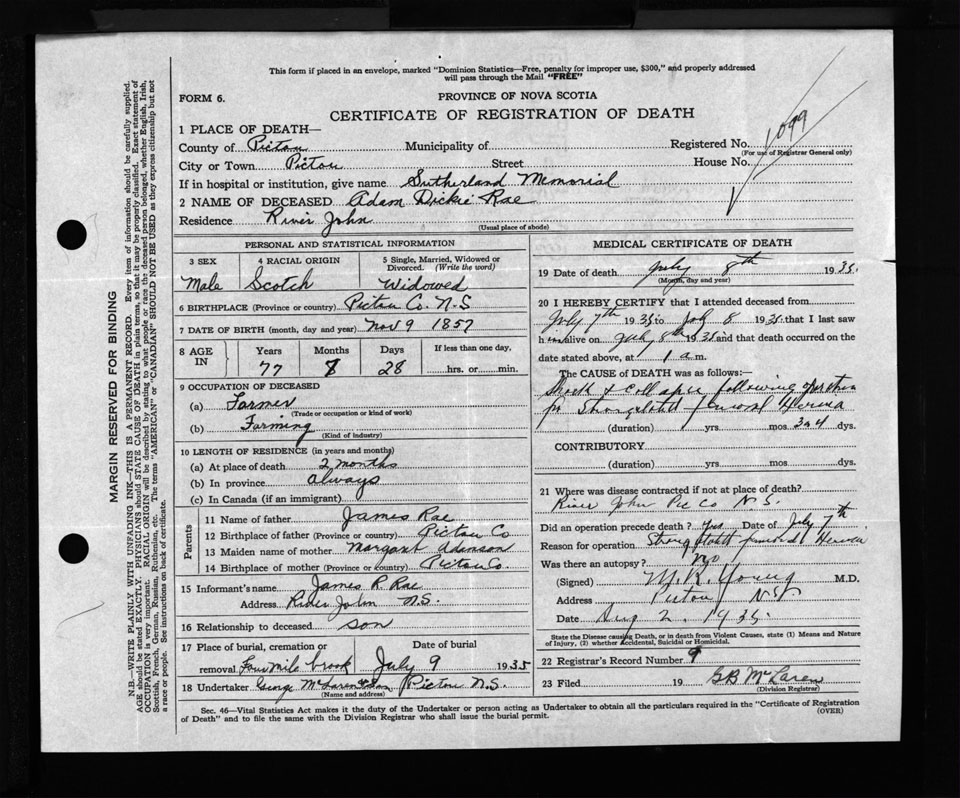 This form if placed in an envelope, marked "Dominion Statistics—Free, penalty for improper use, $300," and properly addressed
will pass through the Mail "FREE"
FORM 6.
PROVINCE OF NOVA SCOTIA
CERTIFICATE OF REGISTRATION OF DEATH
1 PLACE OF DEATH—
County of Pictou Municipality of Registered No. 1099
(For use of Registrar General only)
City or Town Pictou Street House No.
If in hospital or institution, give name Sutherland Memorial
2 NAME OF DECEASED Adam Dickie Rae
Residence River John
(Usual place of abode)
PERSONAL AND STATISTICAL INFORMATION
3 SEX 4 RACIAL ORIGIN 5 Single, Married, Widowed or
Divorced. (Write the word)
Male Scotch Widowed
6 BIRTHPLACE (Province or country) Pictou Co. N.S
7 DATE OF BIRTH (month, day and year) Nov 9 1857
8 AGE IN Years Months Days If less than one day,
77 8 28 hrs. or min.
9 OCCUPATION OF DECEASED
(a) Farmer
(Trade or occupation or kind of work)
(b) Farming
(Kind of industry)
10 LENGTH OF RESIDENCE (in years and months)
(a) At place of death 2 months
(b) In province always
(c) In Canada (if an immigrant)
Parents
11 Name of father James Rae
12 Birthplace of father (Province or country) Pictou Co
13 Maiden name of mother Margaret Adamson
14 Birthplace of mother (Province or country) Pictou Co.
15 Informant's name James R. Rae
Address River John N.S.
16 Relationship to deceased son
17 Place of burial, cremation or Date of burial
removal Four Mile brook July 9 1935
18 Undertaker George McLaren & Son Pictou N.S.
(Name and address)
MEDICAL CERTIFICATE OF DEATH
19 Date of death July 8th 1935.
(Month, day and year)
20 I HEREBY CERTIFY that I attended deceased from
July 7th 1935 to July 8 1935 that I last saw
him alive on July 8th 1935 and that death occurred on the
date stated above, at 1 a.m.
The CAUSE of DEATH was as follows:—
Shock & collapse following operation
for Strangulated femoral Hernia
(duration) yrs mos 3 or 4 dys.
CONTRIBUTORY
(duration) yrs mos dys.
21 Where was disease contracted if not at place of death?
River John Pic Co N.S.
Did an operation precede death? yes Date of July 7th
Reason for operation Strangulated femoral Hernia
Was there an autopsy? no
(Signed) M.R. Young M.D.
Address Pictou N.S.
Date Aug 2. 1935
State the Disease causing Death, or in death from Violent Causes, state (1) Means and Nature
of Injury, (2) whether Accidental, Suicidal or Homicidal.
22 Registrar's Record Number 9
23 Filed 19 G B McLaren
(Division Registrar)
Sec. 46—Vital Statistics Act makes it the duty of the Undertaker or person acting as Undertaker to obtain all the particulars required in the "Certificate of Registration
of Death" and to file the same with the Division Registrar who shall issue the burial permit. (OVER)
MARGIN RESERVED FOR BINDING
N.B.—WRITE PLAINLY WITH UNFADING INK—THIS IS A PERMANENT RECORD. Every item of information should be carefully supplied.
AGE should be stated EXACTLY. PHYSICIANS should STATE CAUSE OF DEATH in plain terms, so that it may be properly classified. Exact statement of
OCCUPATION is very important. RACIAL ORIGIN will be described by stating to what people or race the deceased person belonged, whether English, Irish,
Scottish, French, German, Russian, Ruthenian, etc. The terms "AMERICAN" or "CANADIAN" SHOULD NOT BE USED as they express citizenship but not
a race or people. See instructions on back of certificate.